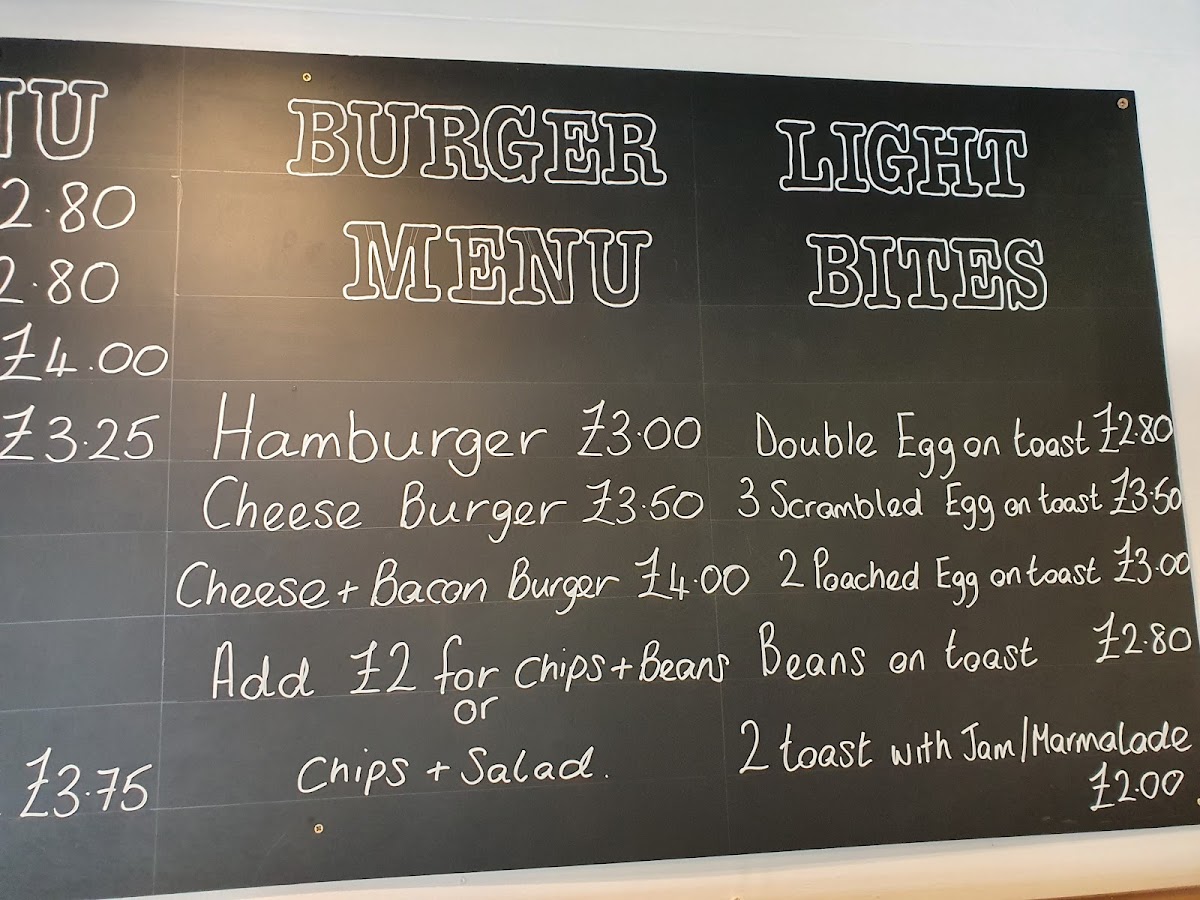 NU
2.80
2.80
£4.00
£3.25
£3.75
BURGER
MENU
Hamburger £3.00
Cheese Burger £3.50
Cheese + Bacon Burger £4.00
Add £2 for chips + Beans
or
Chips + Salad.
LIGHT
BITES
Double Egg on toast £2.80
3 Scrambled Egg on toast £3.50
2 Poached Egg on toast £3.00
Beans on toast £2.80
2 toast with Jam/Marmalade
£2.00